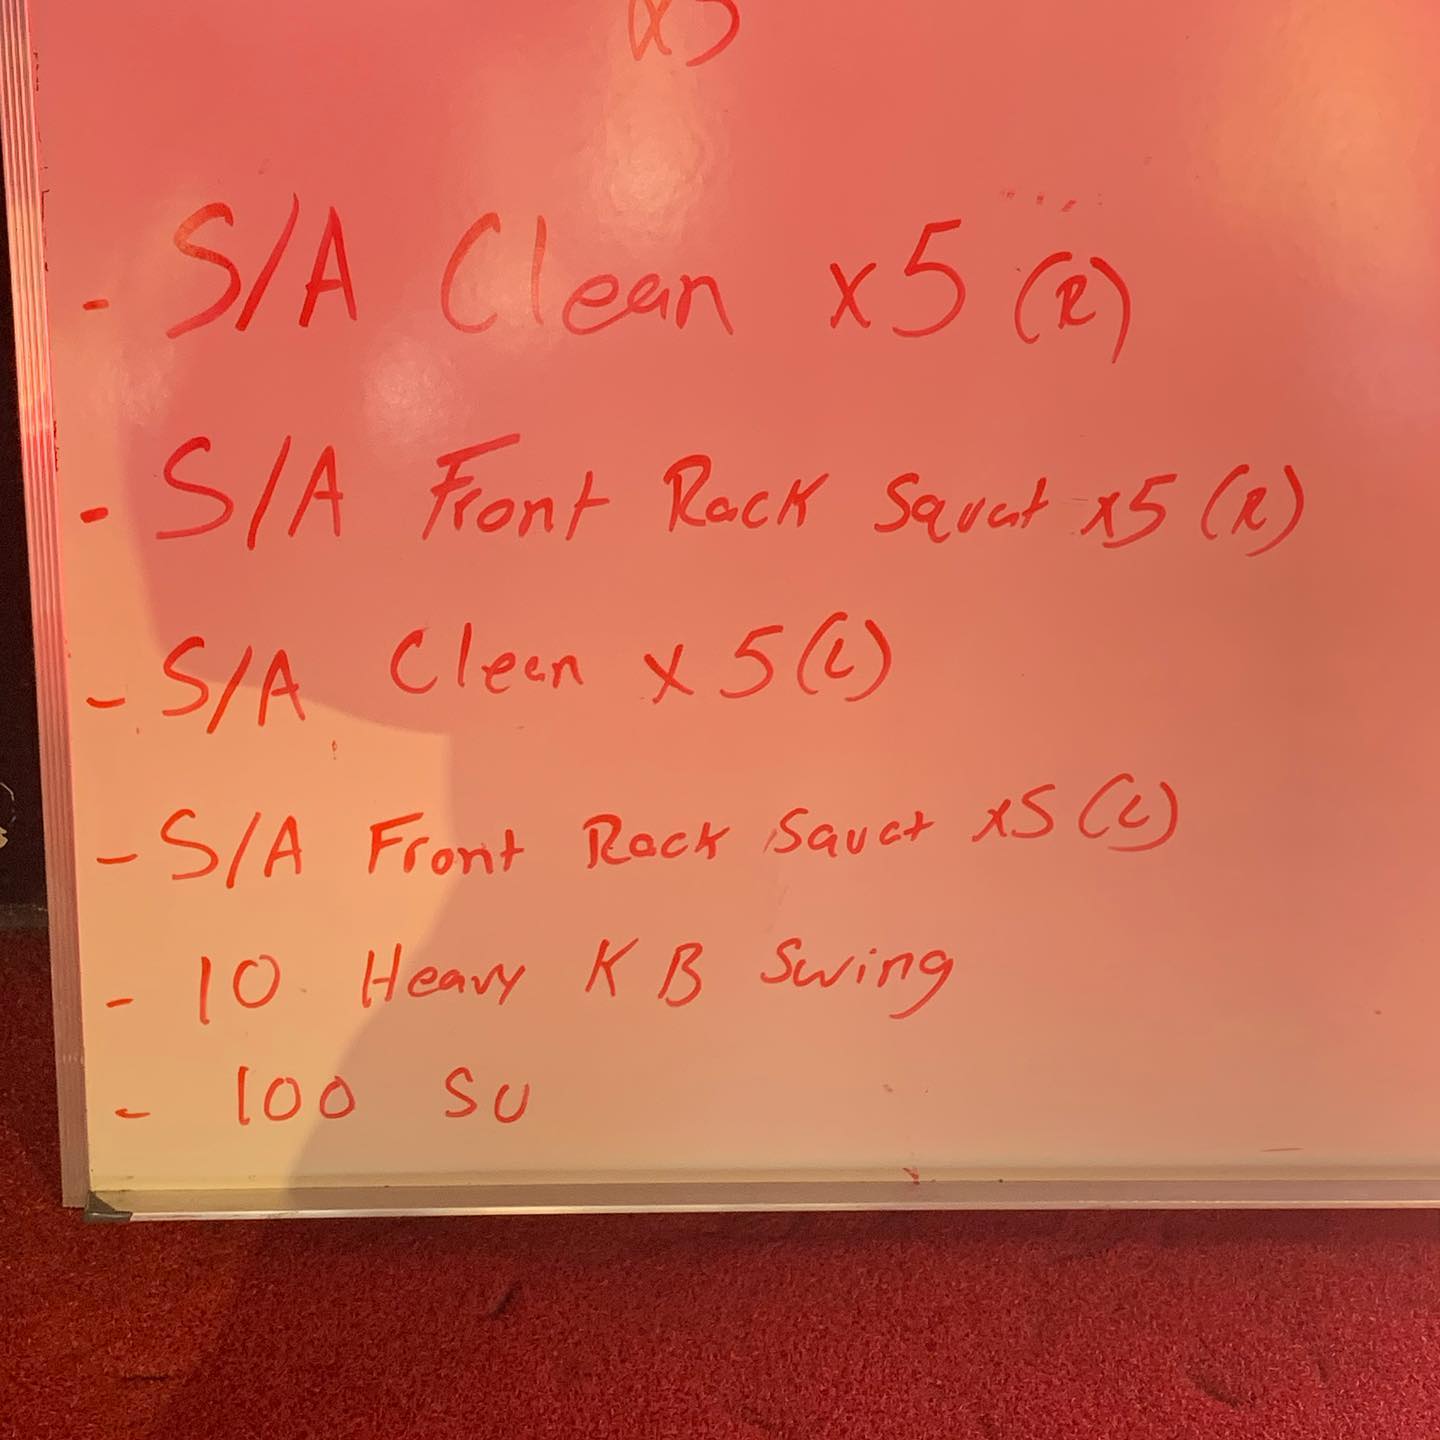 x5
- S/A Clean x5 (R)
- S/A Front Rack Squat x5 (R)
- S/A Clean x 5 (L)
- S/A Front Rack Squat x5 (L)
- 10 Heavy KB Swing
- 100 SU